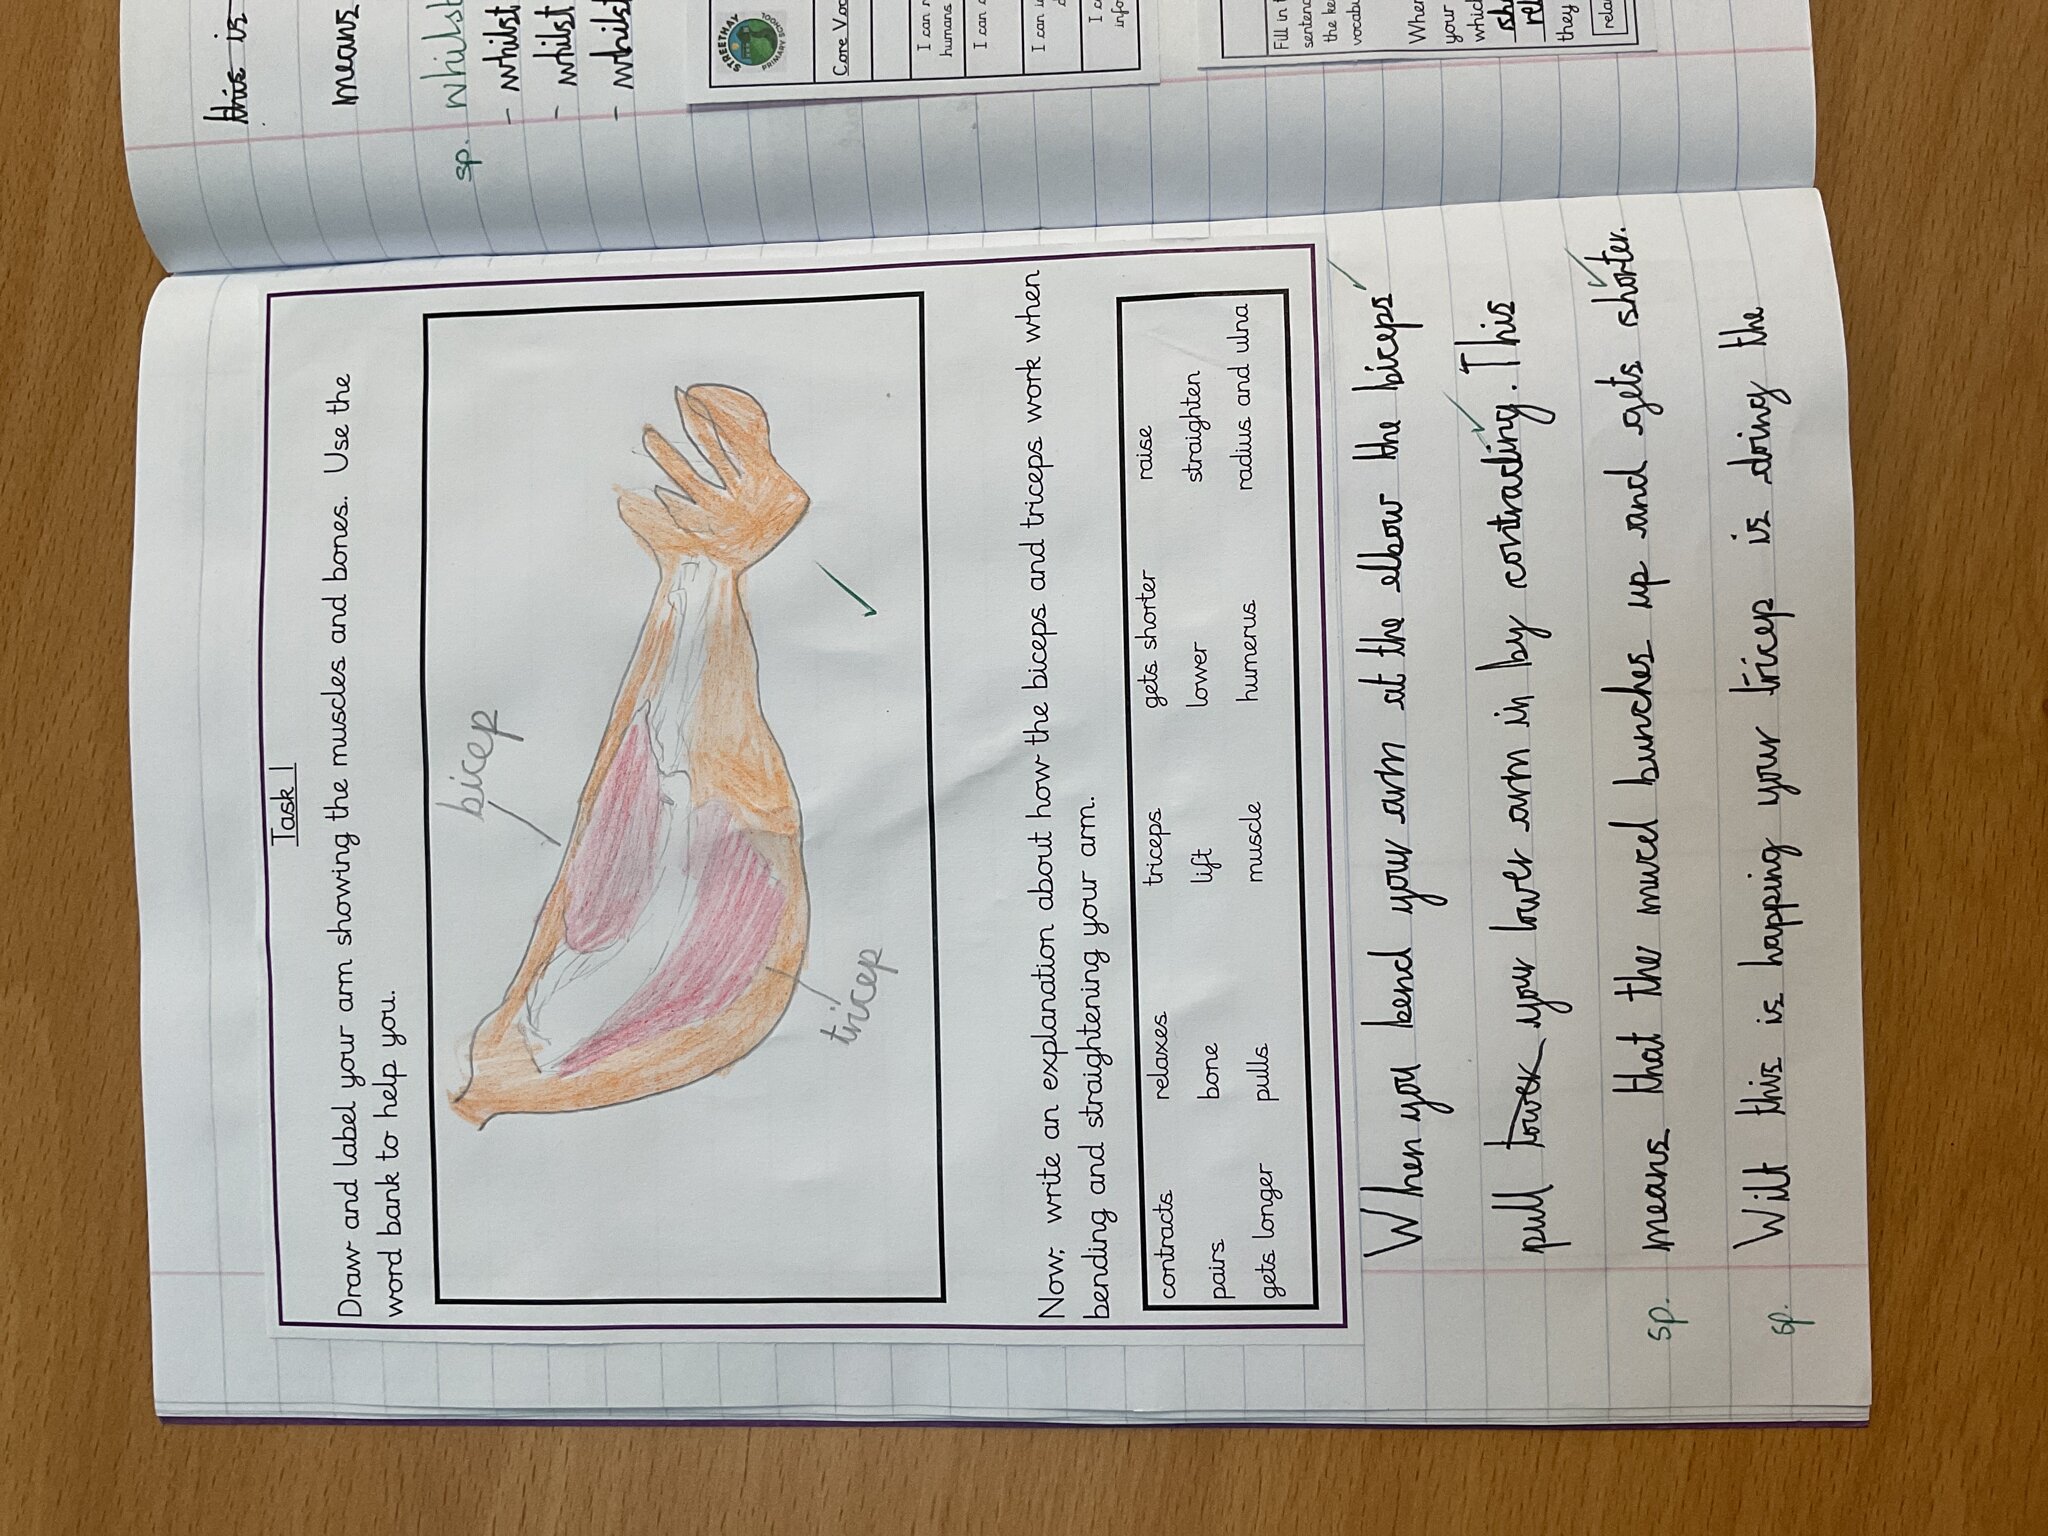 Task 1
Draw and label your arm showing the muscles and bones. Use the
word bank to help you.
bicep
tricep
Now, write an explanation about how the biceps and triceps work when
bending and straightening your arm.
contracts relaxes triceps gets shorter raise
pairs bone lift lower straighten
gets longer pulls muscle humerus radius and ulna
When you bend your arm at the elbow the biceps
pull your lower arm in by contracting. This
sp. means that the mucel bunches up and gets shorter.
sp. Wilt this is happing your tricep is doing the
this is
means
sp. whilst
- whilst
- whilst
- whilst
STREETHAY
PRIMARY SCHOOL
Core Voc
I can
humans
I can
I can
I c
info
Fill in
senten
the ke
vocabu
When
your
which
they
rela